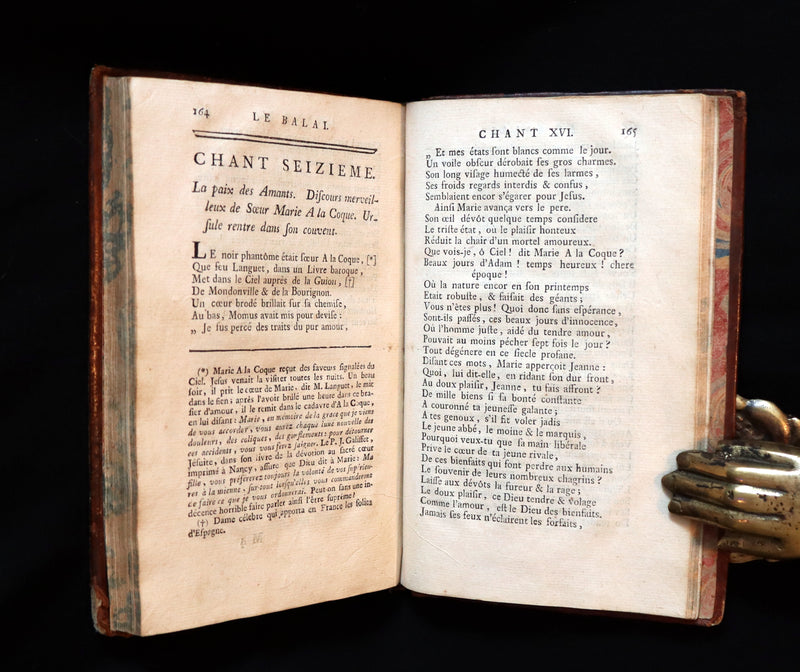 164 LE BALAI.
CHANT SEIZIEME.
La paix des Amants. Diſcours merveil-
leux de Sœur Marie A la Coque. Ur-
ſule rentre dans ſon couvent.
LE noir phantôme était ſœur A la Coque, [*]
Que feu Languet, dans un Livre baroque,
Met dans le Ciel auprès de la Guion, [†]
De Mondonville & de la Bourignon.
Un cœur brodé brillait ſur ſa chemiſe,
Au bas, Momus avait mis pour deviſe:
„ Je ſus percé des traits du pur amour,
(*) Marie A la Coque reçut des faveurs ſignalées du
Ciel. Jeſus venait la viſiter toutes les nuits. Un beau
ſoir, il prit le cœur de Marie, dit M. Languet, le mit
dans le ſien; après l'avoir brûlé une heure dans ce bra-
ſier d'amour, il le remit dans le cadavre d'A la Coque,
en lui diſant: Marie, en mémoire de la grace que je viens
de vous accorder, vous aurez chaque lune nouvelle des
douleurs, des coliques, des gonflements: pour détourner
ces accidents, vous vous ferez ſaigner. Le P. J. Galiffet,
Jéſuite, dans ſon livre de la dévotion au ſacré cœur
imprimé à Nancy, aſſure que Dieu dit à Marie: Ma
fille, vous préférerez toujours la volonté de vos ſupérieu-
res à la mienne, ſur-tout lorſqu'elles vous commanderont
de faire ce que je vous ordonnerai. Peut-on ſans une in-
décence horrible faire parler ainſi l'être ſuprême?
(†) Dame célébre qui apporta en France les folies
d'Eſpagne.
CHANT XVI. 165
„ Et mes états ſont blancs comme le jour.
Un voile obſcur dérobait ſes gros charmes.
Son long viſage humecté de ſes larmes,
Ses froids regards interdis & confus,
Semblaient encor s'égarer pour Jeſus.
Ainſi Marie avança vers le pere.
Son œil dévôt quelque temps conſidere
Le triſte état, où le plaiſir honteux
Réduit la chair d'un mortel amoureux.
Que vois-je, ô Ciel! dit Marie A la Coque?
Beaux jours d'Adam! temps heureux! chere
époque!
Où la nature encor en ſon printemps
Etait robuſte, & faiſait des géants;
Vous n'êtes plus! Quoi donc ſans eſpérance,
Sont-ils paſſés, ces beaux jours d'innocence,
Où l'homme juſte, aidé du tendre amour,
Pouvait au moins pécher ſept fois le jour?
Tout dégénere en ce ſiecle profane.
Diſant ces mots, Marie apperçoit Jeanne:
Quoi, lui dit-elle, en ridant ſon dur front,
Au doux plaiſir, Jeanne, tu fais affront?
De mille biens ſi ſa bonté conſtante
A couronné ta jeuneſſe galante;
A tes genoux, s'il fit voler jadis
Le jeune abbé, le moine & le marquis,
Pourquoi veux-tu que ſa main libérale
Prive le cœur de ta jeune rivale,
De ces bienfaits qui font perdre aux humains
Le ſouvenir de leurs nombreux chagrins?
Laiſſe aux dévôts la fureur & la rage;
Le doux plaiſir, ce Dieu tendre & volage
Comme l'amour, eſt le Dieu des bienfaits.
Jamais ſes feux n'éclairent les forfaits,